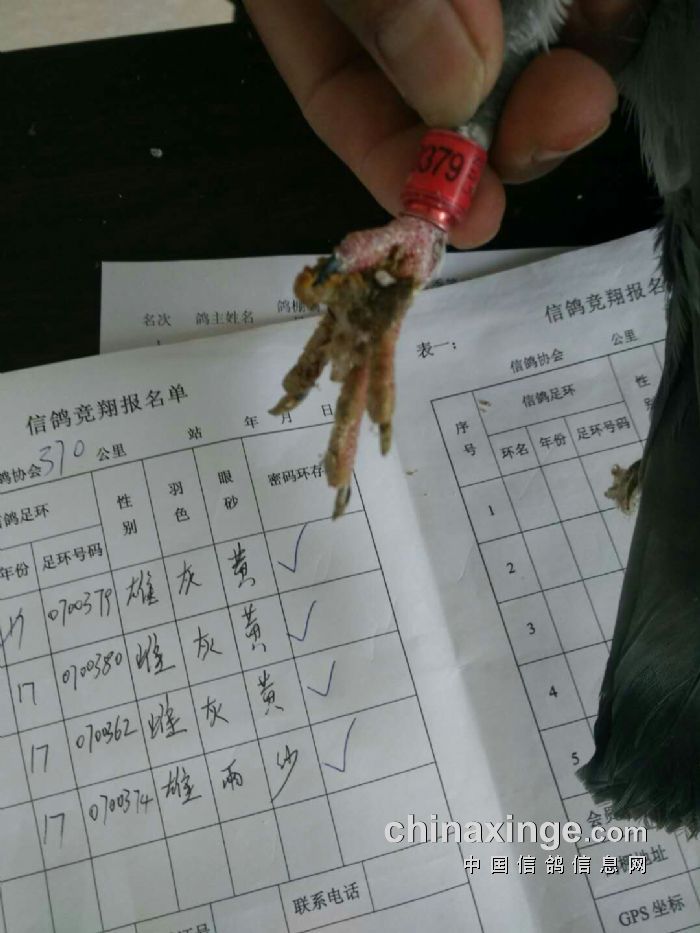 0379
名次 鸽主姓名 鸽棚
信鸽竞翔报名单
鸽协会 370 公里 站 年 月 日
信鸽足环 性别 羽色 眼砂 密码环存
年份 足环号码
17 0700379 雄 灰 黄 ✓
17 0700380 雌 灰 黄 ✓
17 070362 雌 灰 黄 ✓
17 0700374 雄 雨 沙 ✓
联系电话
信鸽竞翔报名
表一:
信鸽协会 公里
序号 信鸽足环 性别
环名 年份 足环号码
1
2
3
4
5
会员
地址
GPS 坐标
chinaxinge.com
中国信鸽信息网